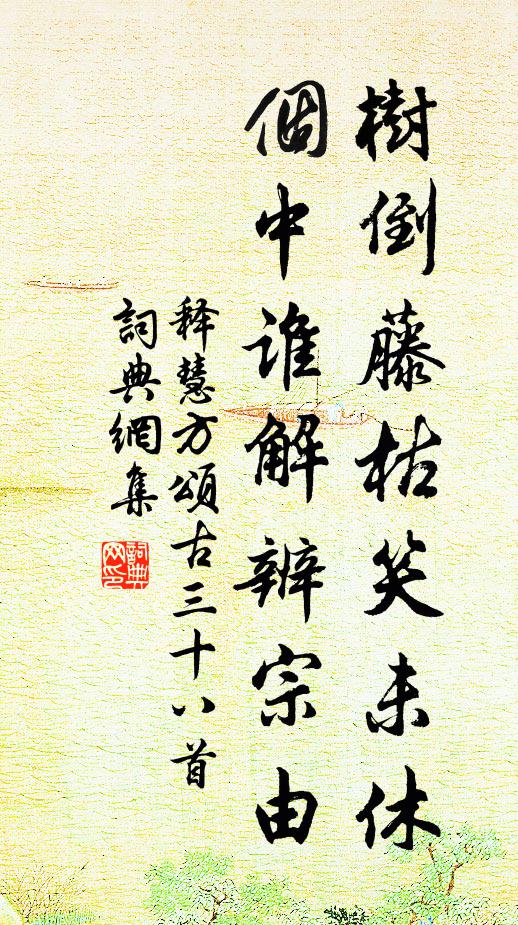 樹倒藤枯笑未休
個中誰解辨宗由
释慧方頌古三十八首
詞典網集
詞典网印